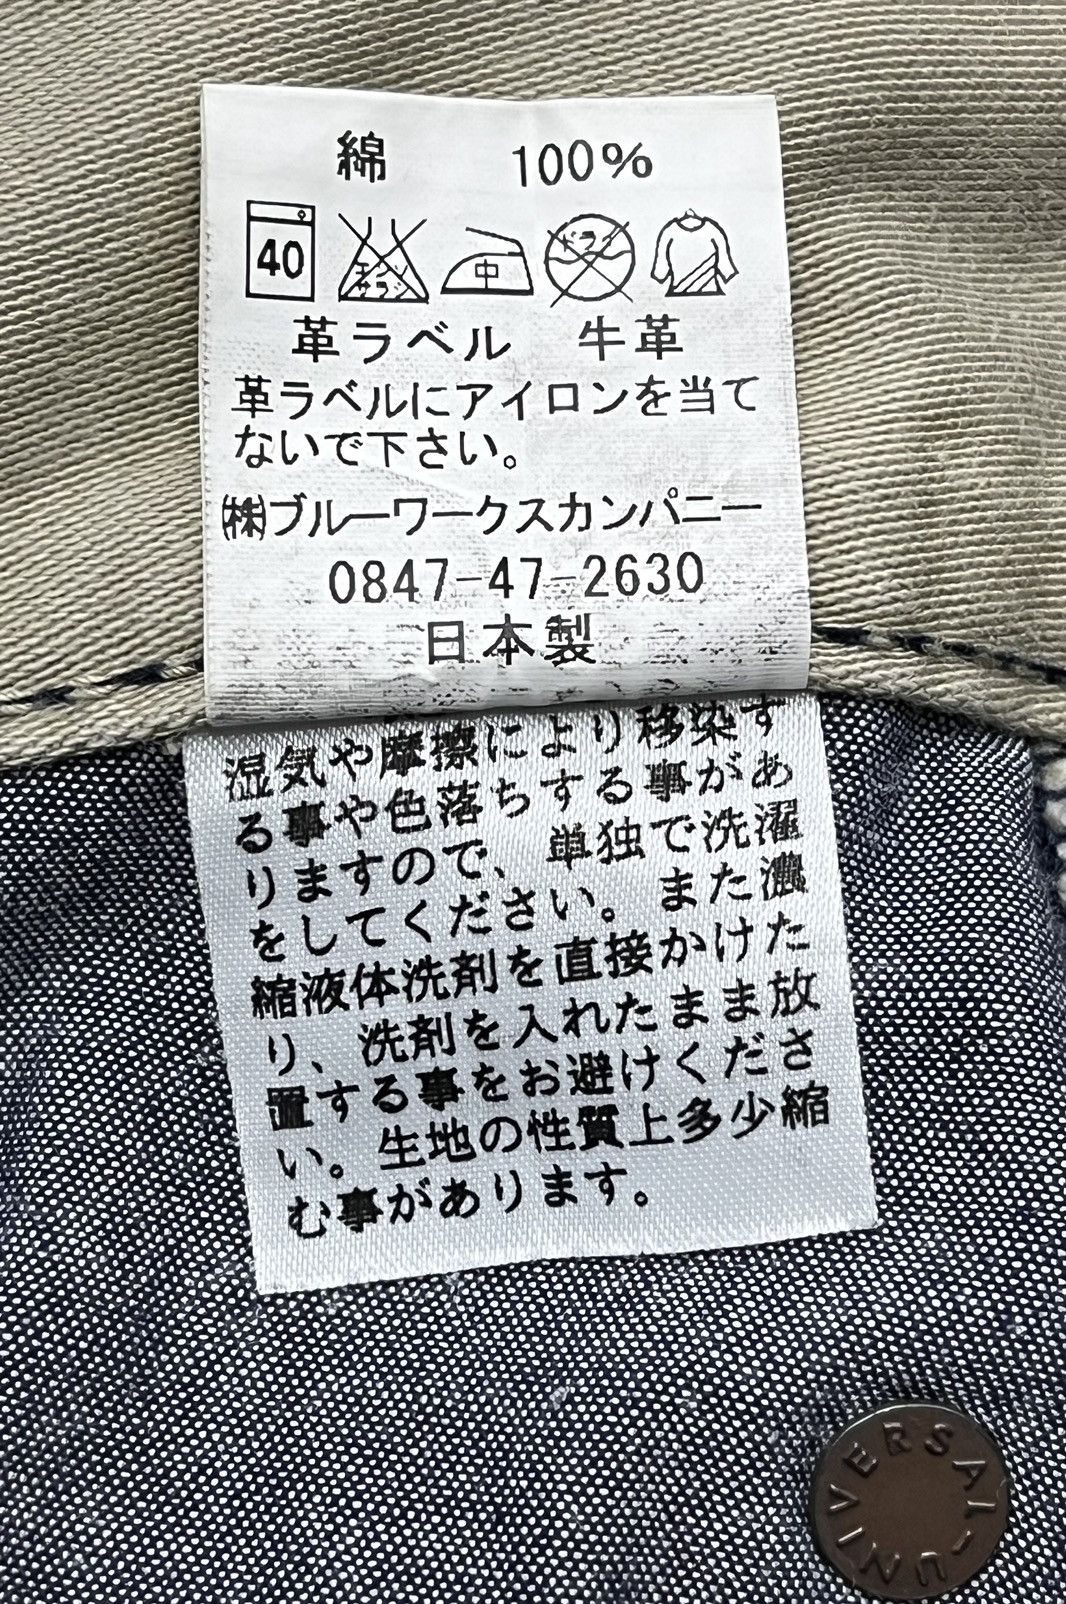 綿 100%
40
エンソ
サラシ
中
ドライ
革ラベル 牛革
革ラベルにアイロンを当て
ないで下さい。
㈱ブルーワークスカンパニー
0847-47-2630
日本製
湿気や摩擦により移染す
る事や色落ちする事があ
りますので、単独で洗濯
をしてください。また濃
縮液体洗剤を直接かけた
り、洗剤を入れたまま放
置する事をお避けくださ
い。生地の性質上多少縮
む事があります。
UNIVERSAL